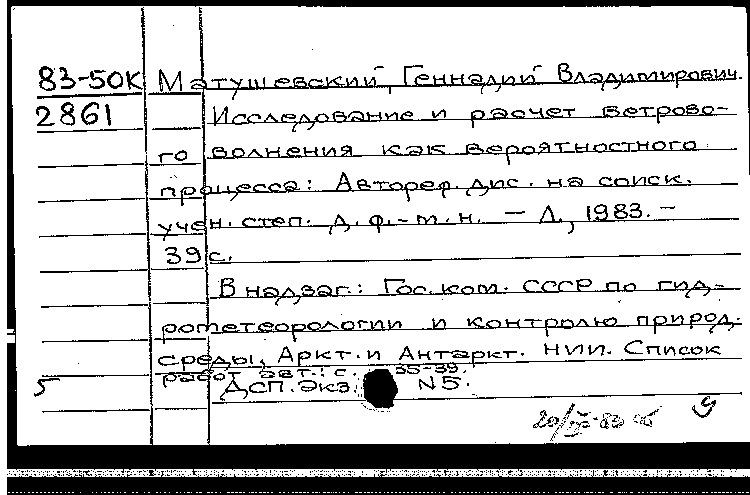 83-50К Матушевский, Геннадий Владимирович.
2861 Исследование и расчет ветрово-
го волнения как вероятностного
процесса: Автореф. дис. на соиск.
учен. степ. д. ф.-м. н. — Л., 1983. —
39 с.
В надзаг.: Гос. ком. СССР по гид-
рометеорологии и контролю природ.
среды, Аркт. и Антаркт. НИИ. Список
работ авт.: с. 35-39.
5 ДСП. Экз. N5.